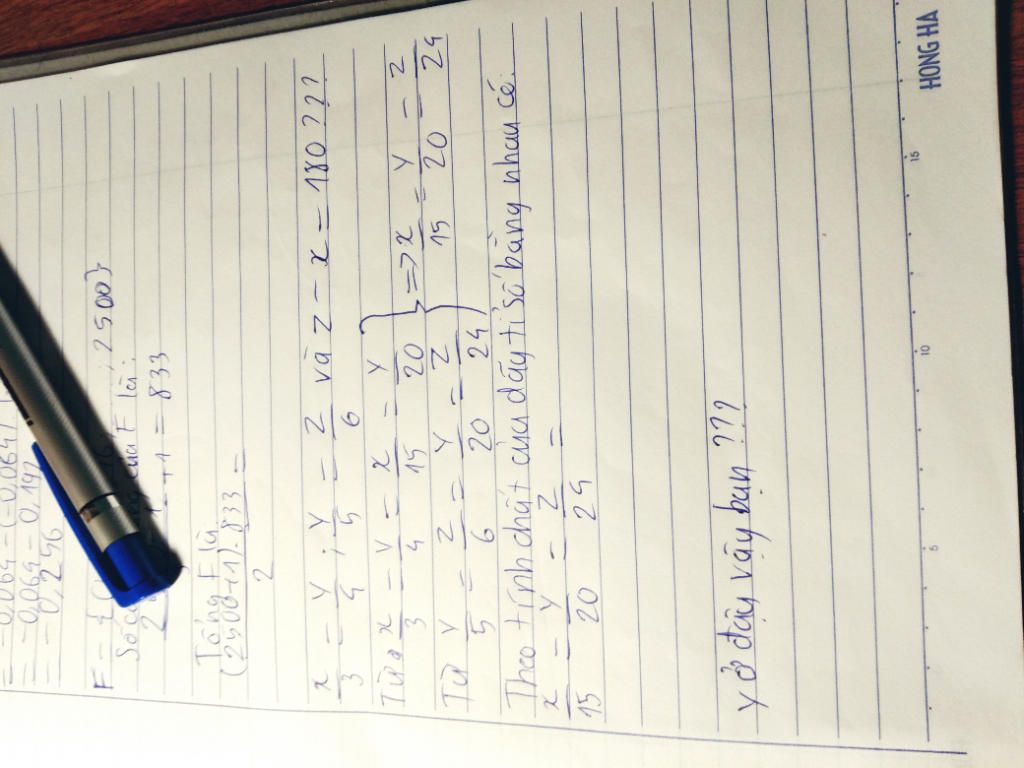 = -0,064 - (-0,064)
= -0,064 - 0,192
= -0,256
F = { ; 2500}
Số của F là:
+1 = 833
Tổng F là
(2500+1).833 =
2
x/3 = y/4 ; y/5 = z/6 và z - x = 180 ???
Từ x/3 = y/4 = x/15 = y/20
Từ y/5 = z/6 = y/20 = z/24
} => x/15 = y/20 = z/24
Theo tính chất của dãy tỉ số bằng nhau có:
x/15 = y/20 = z/24 =
y ở đây vậy bạn ???
5 10 15
HONG HA